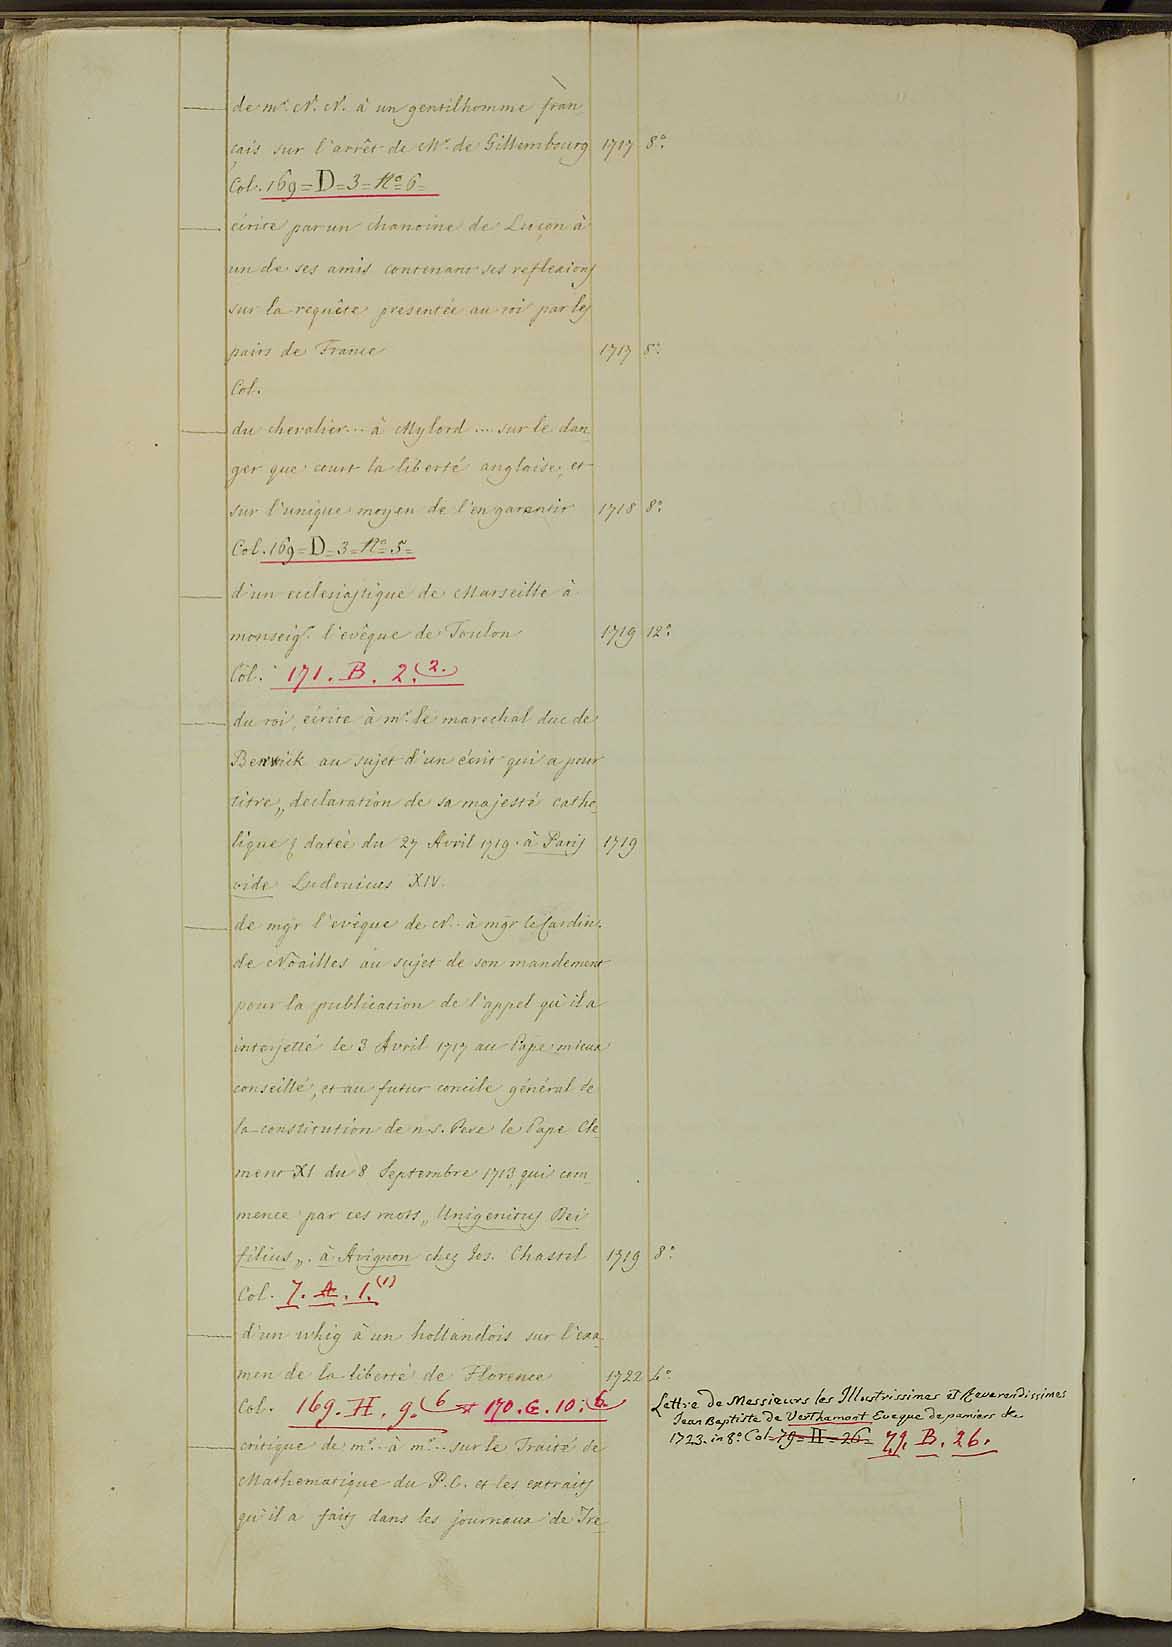 — de mr. N. N. à un gentilhomme fran
çais sur l'arrêt de Mr. de Gillembourg 1717 8°.
Col. 169=D=3=No=6=
— écrite par un chanoine de Luçon à
un de ses amis contenant ses reflexions
sur la requête presentée au roi par les
pairs de France 1717 8°.
Col.
— du chevalier... à Mylord .... sur le dan_
ger que court la liberté anglaise, et
sur l'unique moyen de l'en garentir 1718 8°.
Col. 169=D=3=No=5=
— d'un ecclesiastique de Marseille à
monseigr. l'evêque de Toulon 1719 12°.
Col. 171. B. 2.(2.
— du roi, écrite à mr. le marechal duc de
Berwick au sujet d'un écrit qui a pour
titre „ declaration de sa majesté catho_
lique ( datée du 27 Avril 1719. à Paris 1719
vide Ludovicus XIV.
— de mgr l'evêque de N.. à mgr le Cardin.
de Nôailles au sujet de son mandement
pour la publication de l'appel qu'il a
interjetté le 3 Avril 1717 au Pape mieux
conseillé, et au futur concile général de
la constitution de n. s. Pere le Pape Cle_
ment XI du 8 Septembre 1713 qui com_
mence par ces mots „ Unigenitus Dei
filius „. à Avignon chez Jos. Chastel 1719 8°.
Col. 7. A. 1.(1)
— d'un whig à un hollandois sur l'exa_
men de la liberté de Florence 1722 4°.
Col. 169. H. 9.(6 et 170. G. 10.(6.
Lettre de Messieurs les Illustrissimes et Reverendissimes
Jean Baptiste de Verthamont Eveque de pamiers &c
1723. in 8°. Col=79=H=26= 79. B. 26.
— critique de mr.. à mr... sur le Traité de
Mathematique du P. C. et les extraits
qu'il a faits dans les journaux de Tre_